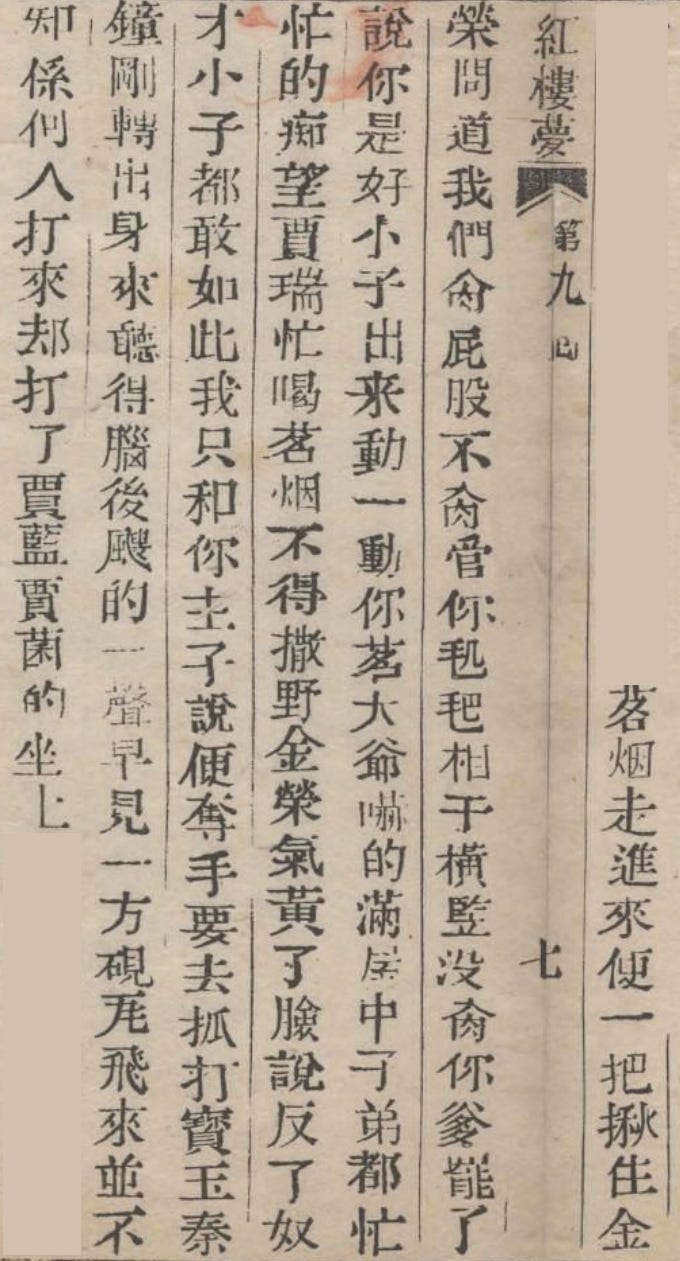 茗烟走進來便一把揪住金
紅樓夢 第九回 七
榮問道我們肏屁股不肏管你𣬠𣬶相干橫監没肏你爹罷了
說你是好小子出来動一動你茗大爺嚇的滿屋中子弟都忙
忙的痴望賈瑞忙喝茗烟不得撒野金榮氣黃了臉說反了奴
才小子都敢如此我只和你主子說便奪手要去抓打寳玉秦
鐘剛轉出身來聽得腦後颼的一聲早見一方硯瓦飛來並不
知係何人打來却打了賈藍賈菌的坐上